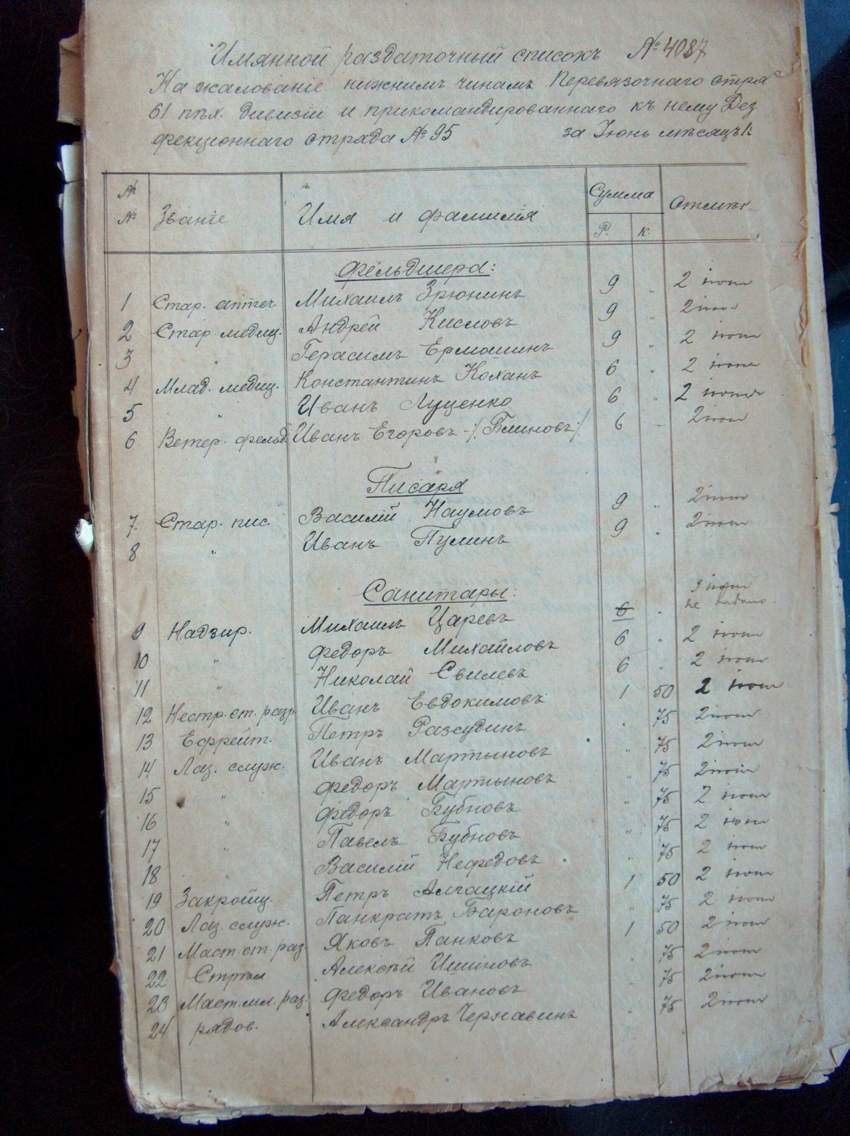 Имянной раздаточный списокъ № 4087
На жалованіе нижнимъ чинамъ Перевязочнаго отря
61 пѣх. дивизіи и прикомандированнаго къ нему Дез
фекціоннаго отряда № 95 за Іюнь мѣсяцъ
№ № Званіе Имя и фамилія Сумма Р. к. Отмѣт
Фельдшера:
1 Стар. аптеч Михаилъ Зрюнинъ 9 „ 2 іюля
2 Стар медиц. Андрей Кисловъ 9 „ 2 іюля
3 „ Герасимъ Ермашинъ 9 „ 2 іюля
4 Млад. медиц. Константинъ Коханъ 6 „ 2 іюля
5 „ Иванъ Луценко 6 „ 2 іюля
6 Ветер. фельд. Иванъ Егоровъ - /Блиновъ/ 6 „ 2 іюля
Писаря
7. Стар. пис. Василій Наумовъ 9 „ 2 іюля
8 „ Иванъ Пулинъ 9 „ 2 іюля
Санитары:
9 Надзир. Михаилъ Царевъ 6 „ не
10 „ Федоръ Михайловъ 6 „ 2 іюля
11 „ Николай Свилевъ 6 „ 2 іюля
12 Нестр. ст. разр. Иванъ Евдокимовъ 1 50 2 іюля
13 Ефрейт. Петръ Разсудинъ „ 75 2 іюля
14 Лаз. служ. Иванъ Мартыновъ „ 75 2 іюля
15 „ Федоръ Мартыновъ „ 75 2 іюля
16 „ Федоръ Бубновъ „ 75 2 іюля
17 „ Павелъ Бубновъ „ 75 2 іюля
18 „ Василій Нефедовъ „ 75 2 іюля
19 Закройщ. Петръ Алчацкій 1 50 2 іюля
20 Лаз. служ. Панкратъ Бароновъ „ 75 2 іюля
21 Маст. ст. раз. Яковъ Панковъ 1 50 2 іюля
22 Алексѣй Ишиновъ „ 75 2 іюля
23 Маст. мл. раз. Федоръ Ивановъ „ 75 2 іюля
24 рядов. Александръ Чернавинъ „ 75 2 іюля